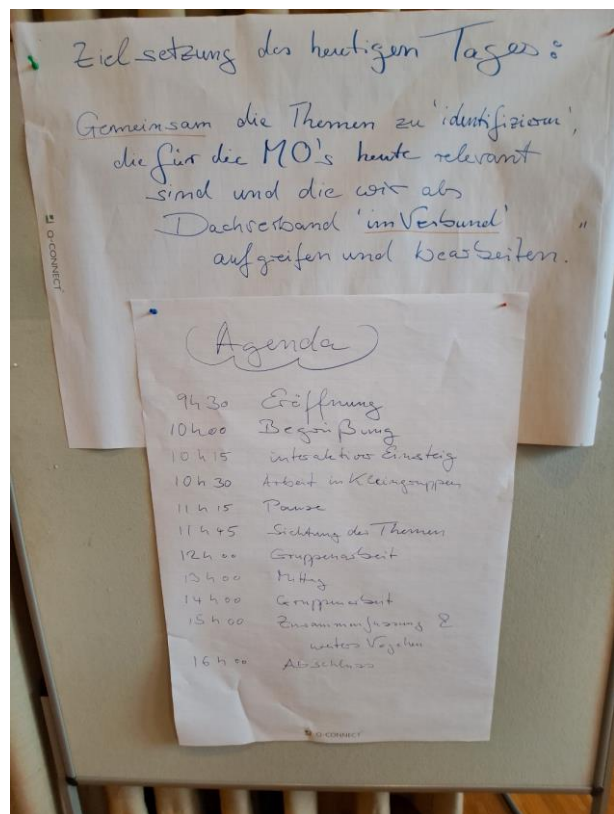 Zielsetzung des heutigen Tages:
Gemeinsam die Themen zu 'identifizieren',
die für die MO's heute relevant
sind und die wir als
Dachverband 'im Verbund'
aufgreifen und bearbeiten.
Q-CONNECT
Agenda
9h30 Eröffnung
10h00 Begrüßung
10h15 interaktiver Einsteig
10h30 Arbeit in Kleingruppen
11h15 Pause
11h45 Sichtung der Themen
12h00 Gruppenarbeit
13h00 Mittag
14h00 Gruppenarbeit
15h00 Zusammenfassung &
weiteres Vorgehen
16h00 Abschluss
Q-CONNECT